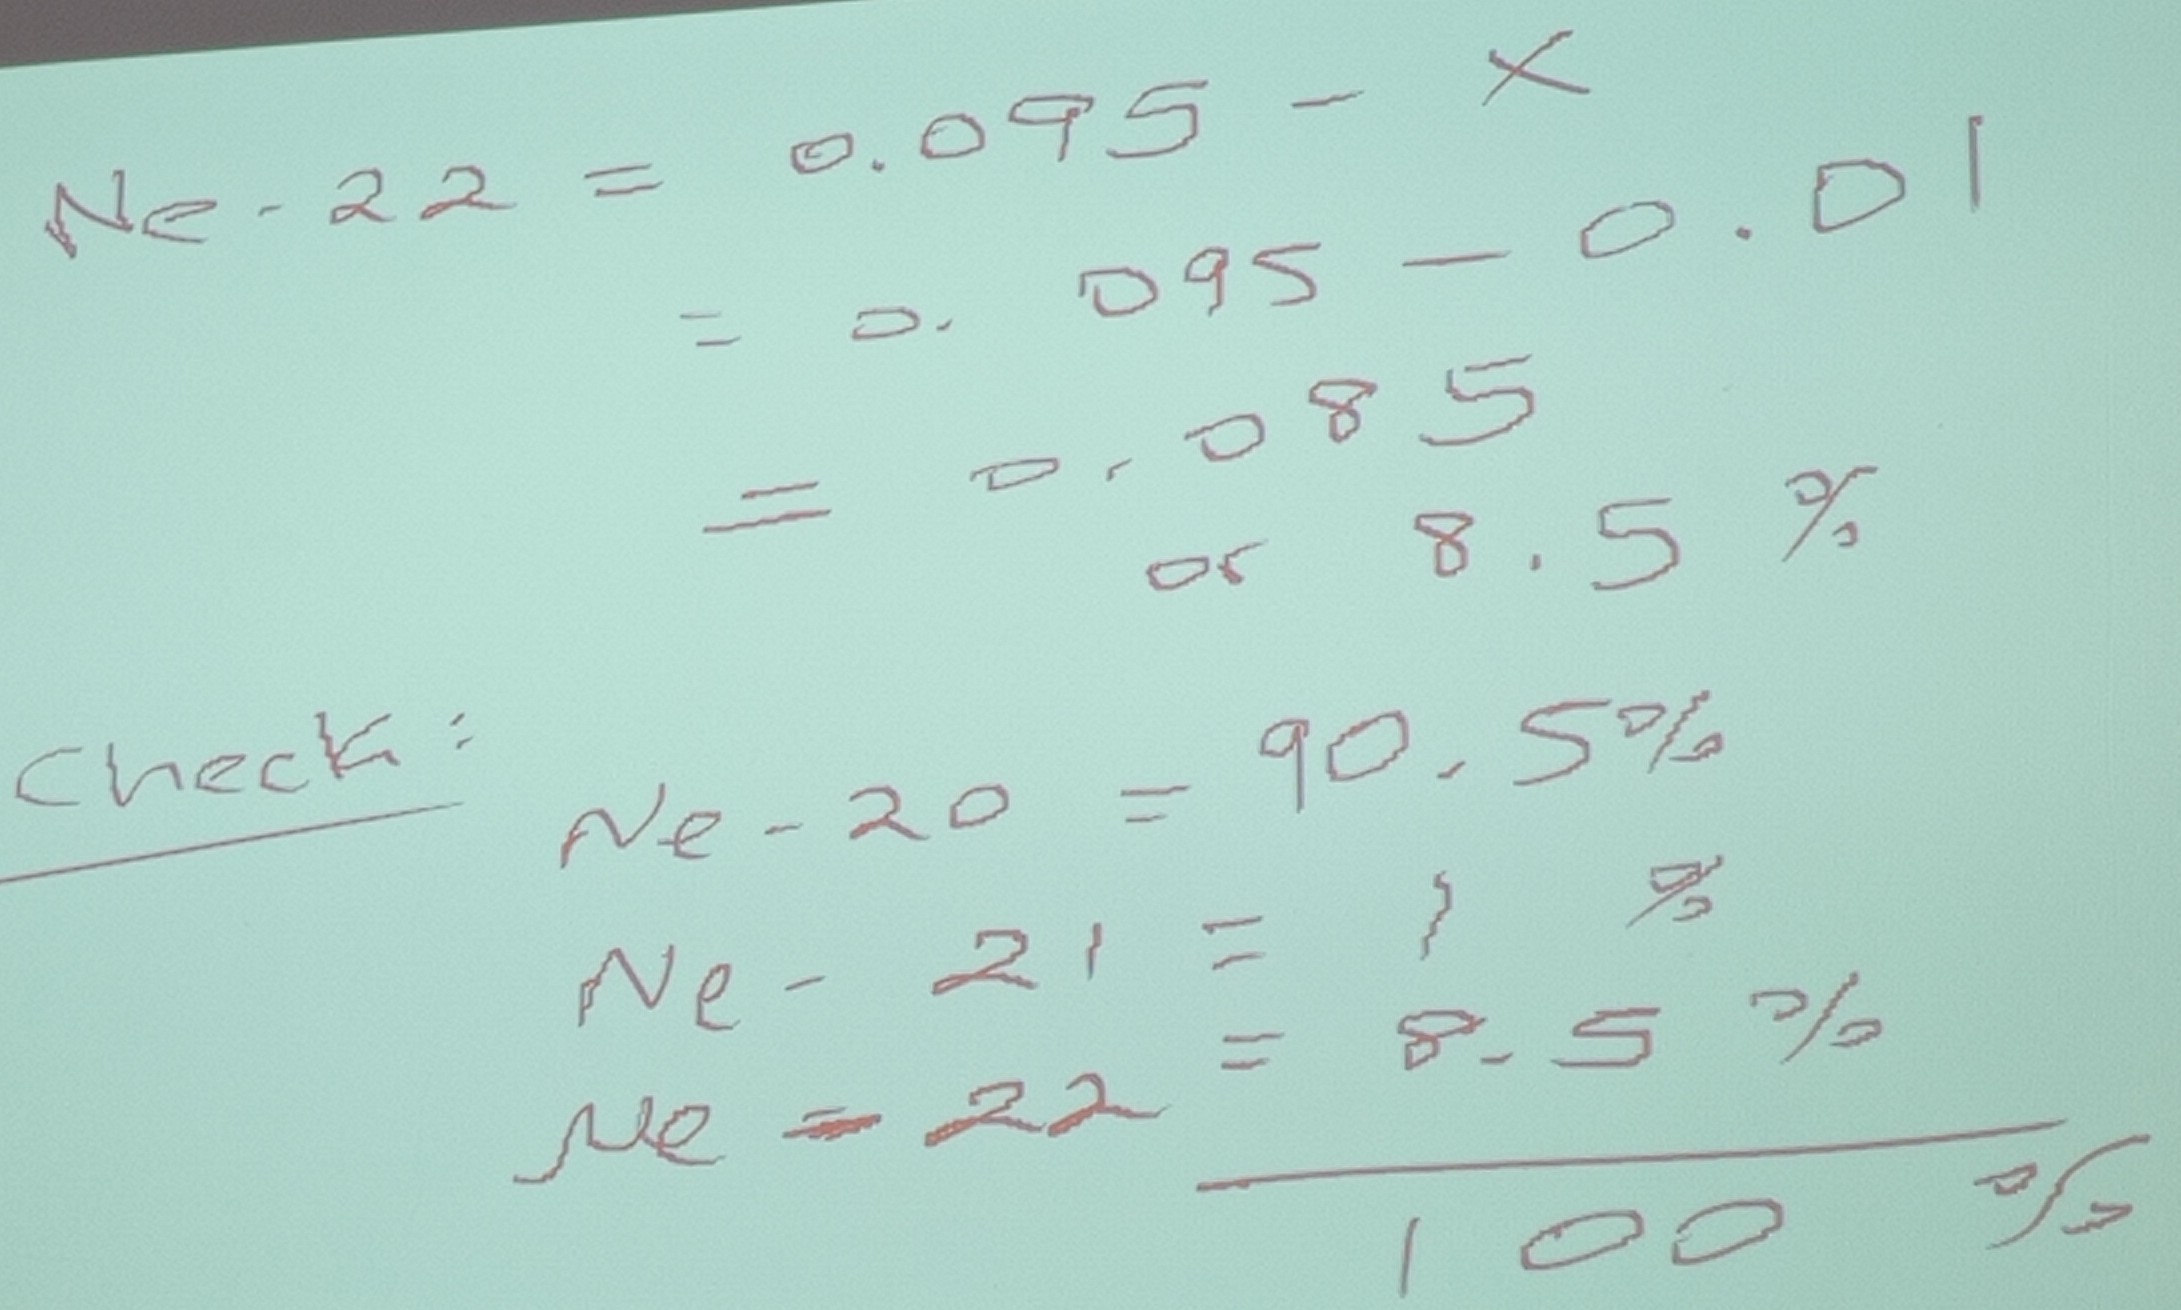 Ne-22 = 0.095 - x
= 0.095 - 0.01
= 0.085
or 8.5 %
Check:
Ne-20 = 90.5%
Ne-21 = 1 %
Ne-22 = 8.5 %
100 %